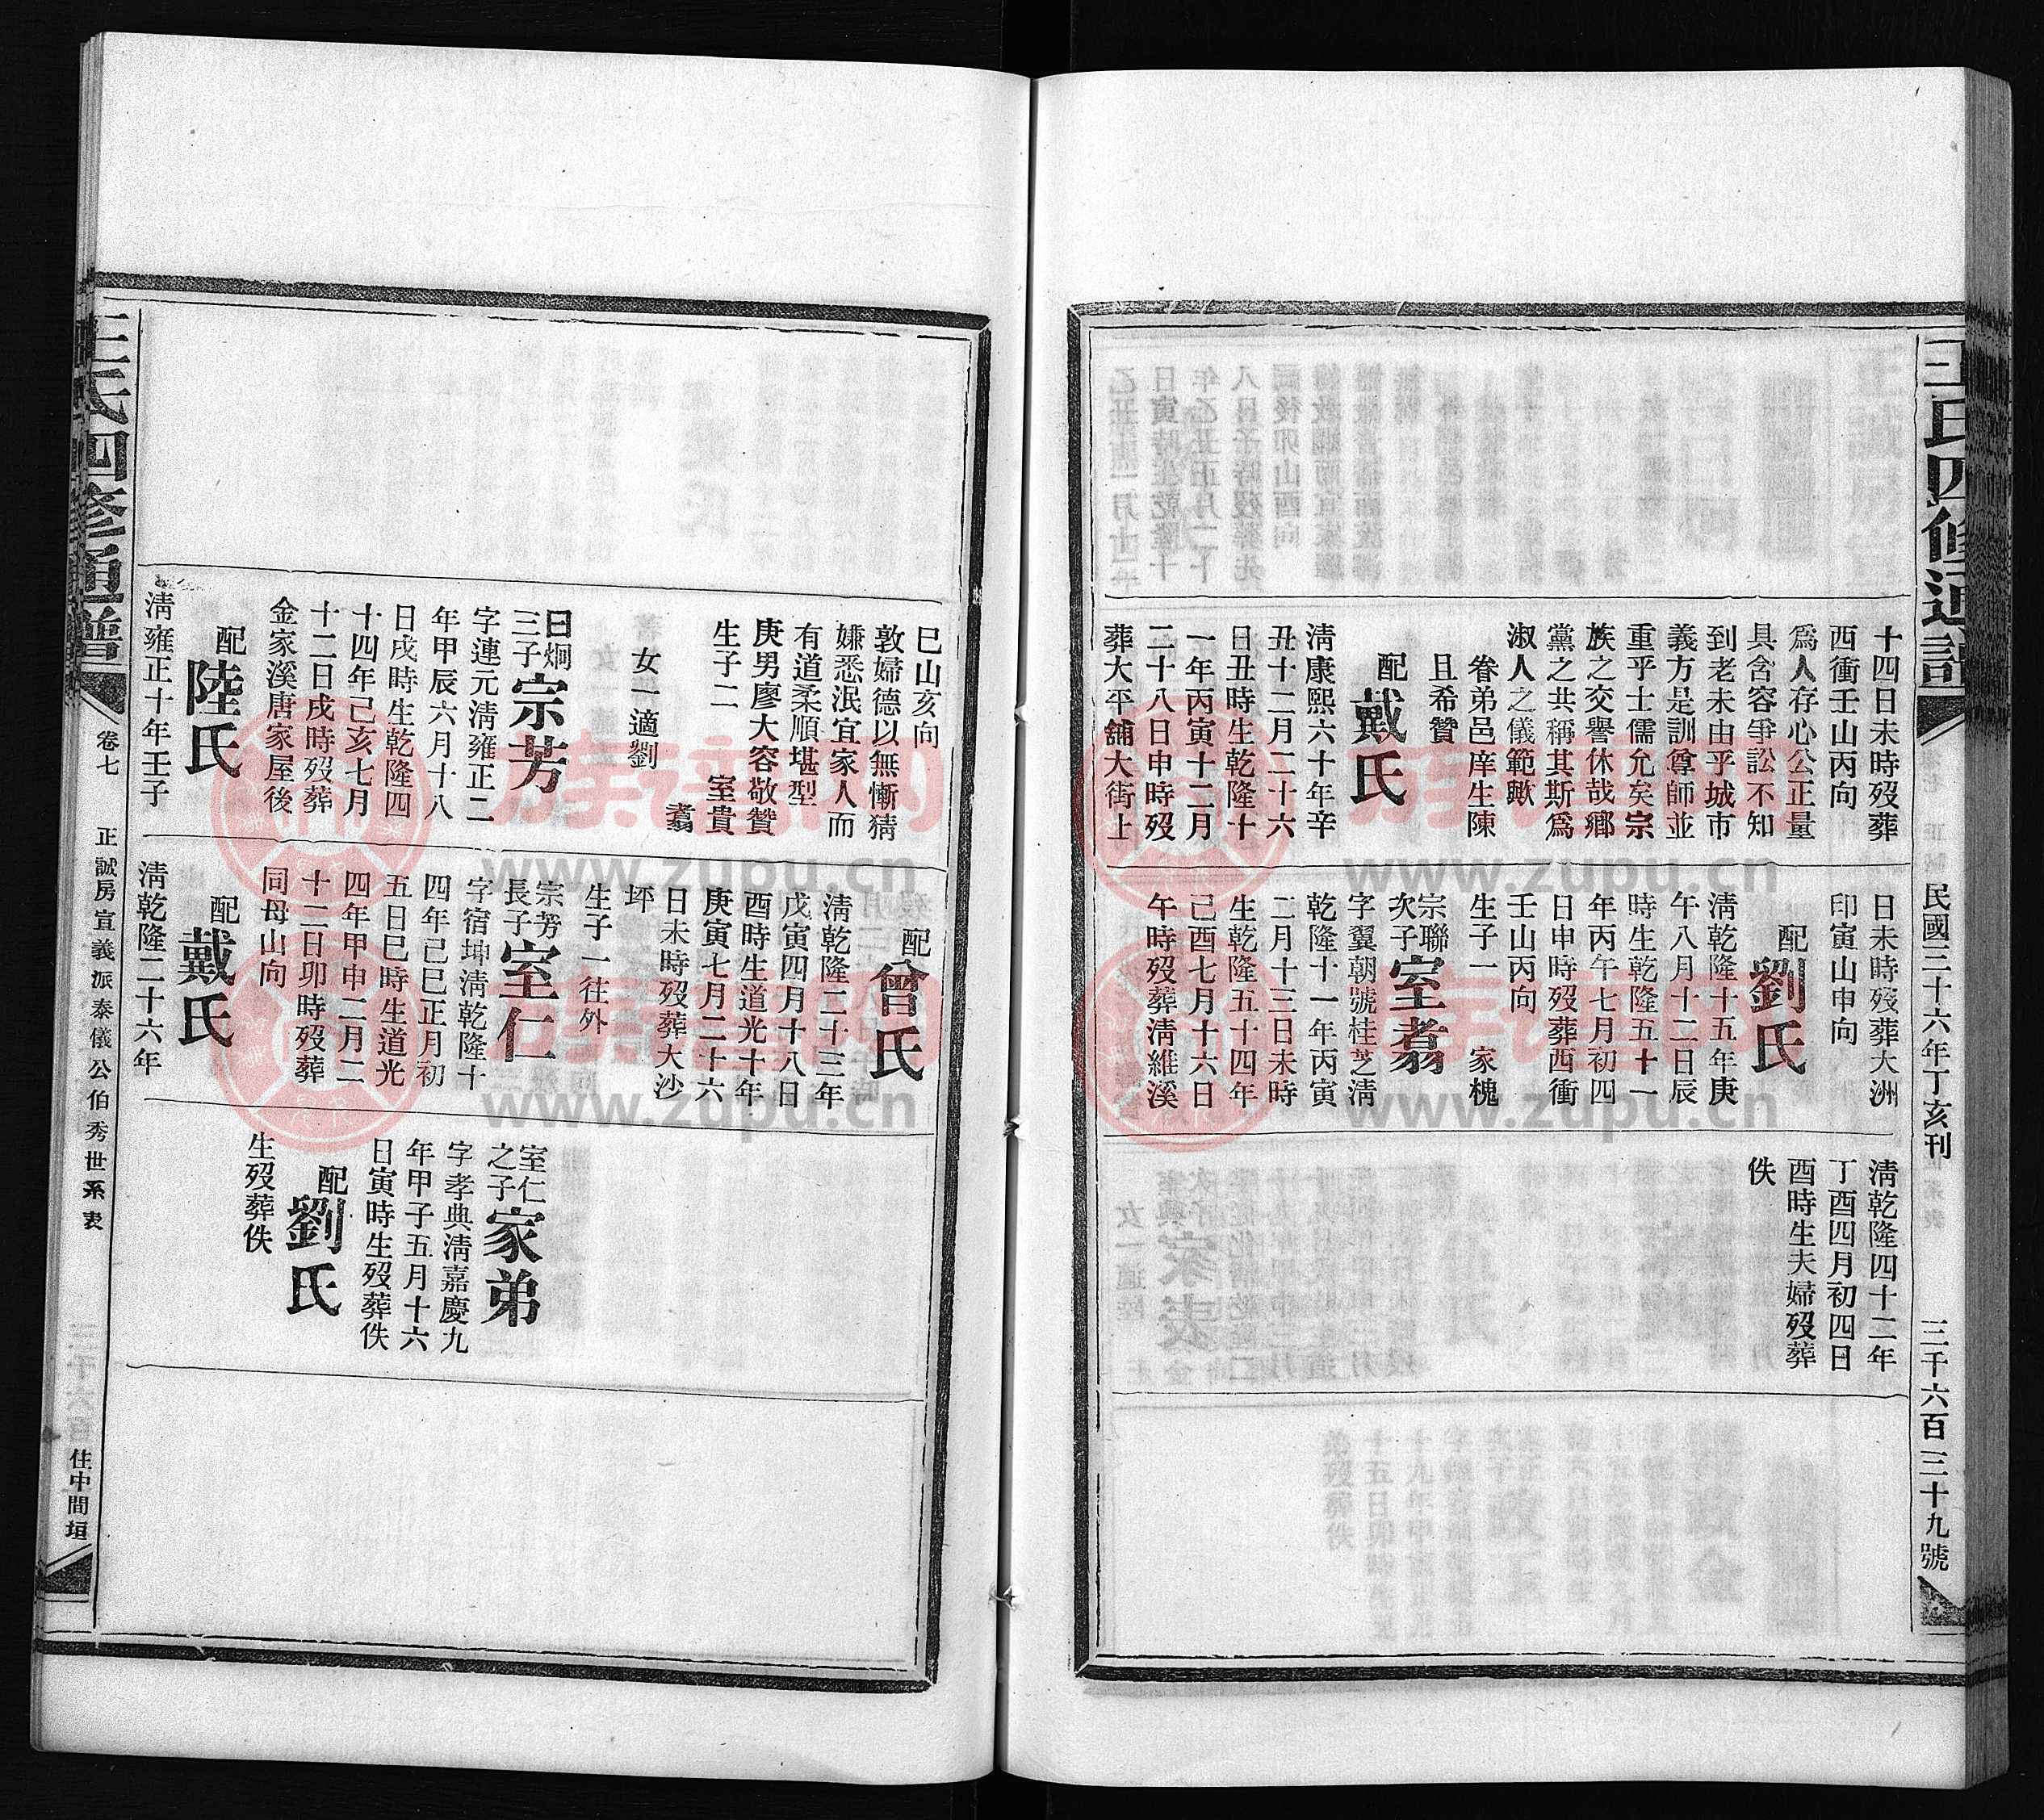 王氏四修通譜
民國三十六年丁亥刊
三千六百三十九號
十四日未時歿葬
西衝壬山丙向
爲人存心公正量
具含容爭訟不知
到老未由乎城市
義方是訓尊師並
重乎士儒允矣宗
族之交譽休哉鄉
黨之共稱其斯爲
淑人之儀範歟
眷弟邑庠生陳
且希贊
配戴氏
淸康熙六十年辛
丑十二月二十六
日丑時生乾隆十
一年丙寅十二月
二十八日申時歿
葬大平舖大街上
日未時歿葬大洲
印寅山申向
配劉氏
淸乾隆十五年庚
午八月十二日辰
時生乾隆五十一
年丙午七月初四
日申時歿葬西衝
壬山丙向
生子一 家槐
宗聯
次子室翥
字翼朝號桂芝淸
乾隆十一年丙寅
二月十三日未時
生乾隆五十四年
己酉七月十六日
午時歿葬淸維溪
淸乾隆四十二年
丁酉四月初四日
酉時生夫婦歿葬
佚
巳山亥向
敦婦德以無慚猜
嫌悉泯宜家人而
有道柔順堪型
庚男廖大容敬贊
生子二 室貴
翥
女一適劉
日炯
三子宗芳
字連元淸雍正二
年甲辰六月十八
日戌時生乾隆四
十四年己亥七月
十二日戌時歿葬
金家溪唐家屋後
配陸氏
淸雍正十年壬子
配曾氏
淸乾隆二十三年
戊寅四月十八日
酉時生道光十年
庚寅七月二十六
日未時歿葬大沙
坪
生子一往外
宗芳
長子室仁
字宿坤淸乾隆十
四年己巳正月初
五日巳時生道光
四年甲申二月二
十二日卯時歿葬
同母山向
配戴氏
淸乾隆二十六年
室仁
之子家弟
字孝典淸嘉慶九
年甲子五月十六
日寅時生歿葬佚
配劉氏
生歿葬佚
王氏四修通譜
卷七
正誠房宣義派泰儀公伯秀世系表
住中間垣
族谱网
www.zupu.cn
族谱网
www.zupu.cn
族谱网
www.zupu.cn
族谱网
www.zupu.cn